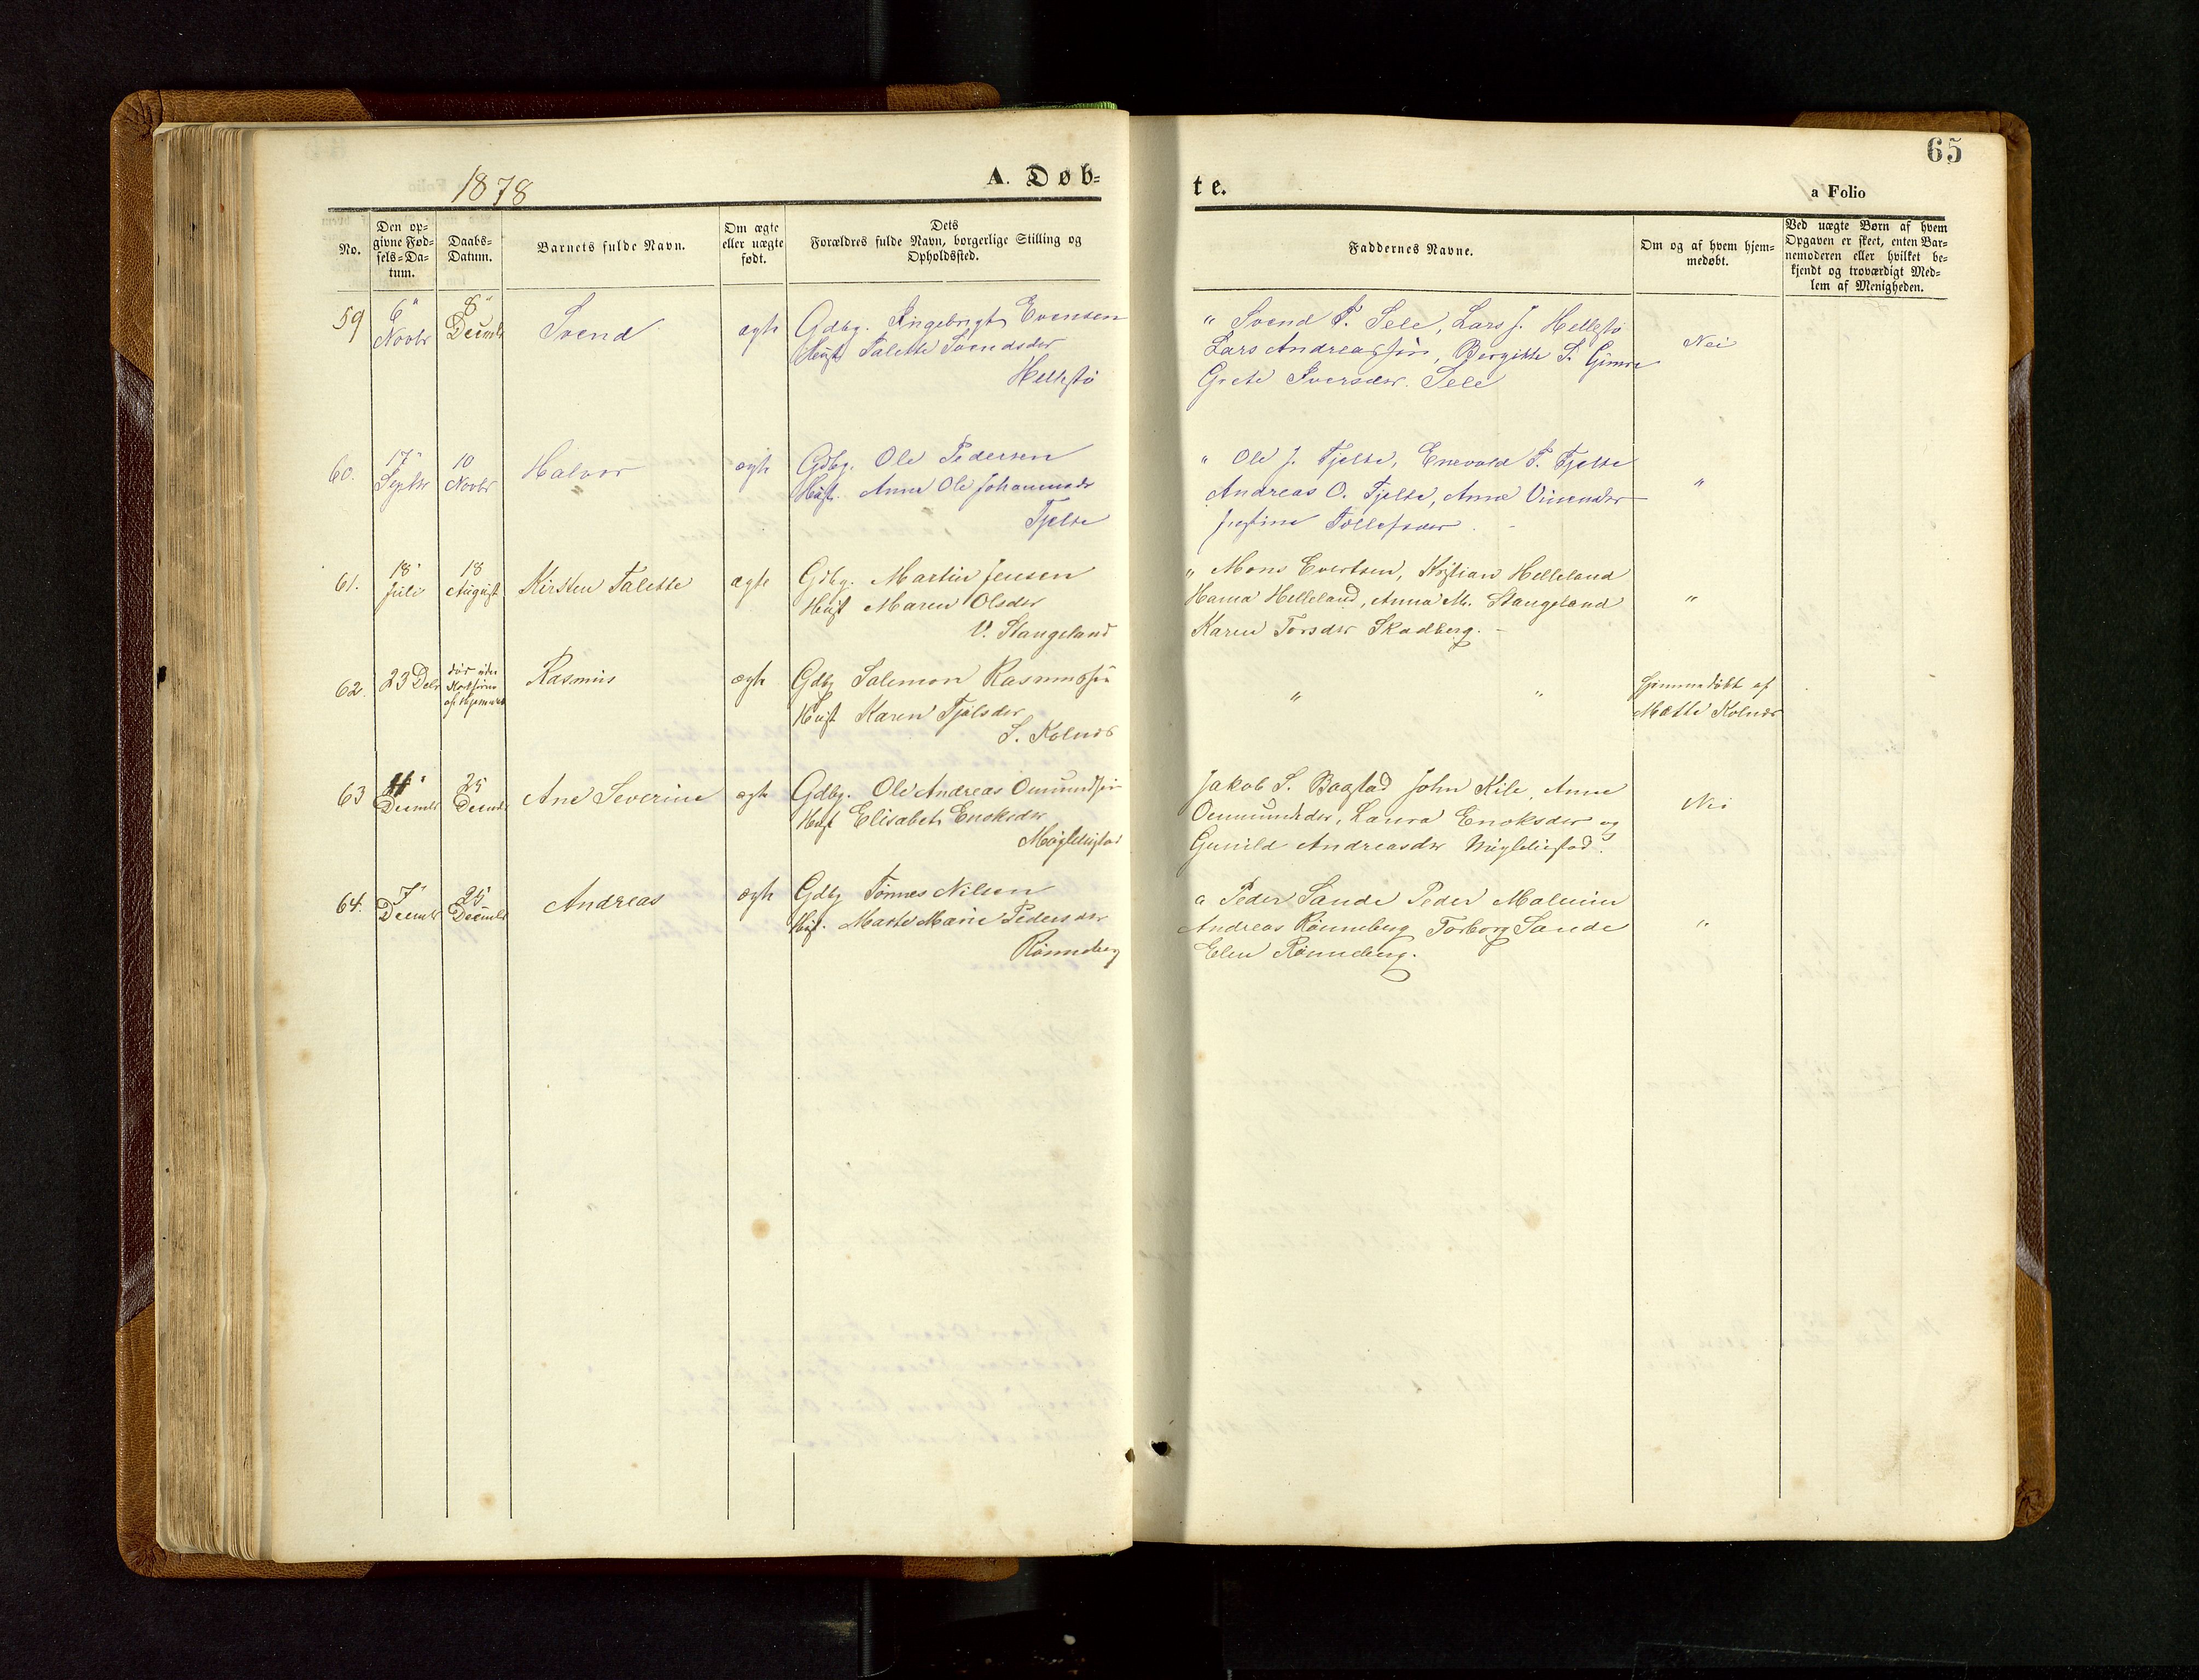 65
1878
A. Døb-
te.
a Folio
No.
Den op-
givne Fød-
sels-Da-
tum.
Daabs-
Datum.
Barnets fulde Navn.
Om ægte
eller uægte
født.
Dets
Forældres fulde Navn, borgerlige Stilling og
Opholdssted.
Faddernes Navne.
Om og af hvem hjem-
medøbt.
Ved uægte Børn af hvem
Opgaven er skeet, enten Bar-
nemoderen eller hvilket be-
kjendt og troværdigt Med-
lem af Menigheden.
59
6"
Novbr
8"
Decmbr
Svend
ægte
Gdbg. Ingebrigt Evensen
Hust Talette Svendsdr
Hellestø
" Svend P. Sele, Lars J. Hellestø
Lars Andreassøn, Bergitte S. Gimre
Grete Iversdr. Sele
Nei
60.
17"
Septbr
10
Novbr
Halvor
ægte
Gdbg. Ole Pedersen
Hust. Anne Ole Johannesdr
Tjelte
" Ole J. Tjelte, Enevald P. Tjelte
Andreas O. Tjelte, Anna
Justine Tollefsdr
"
61.
18"
Juli
18
August
Kirsten Talette
ægte
Gdbg. Martin Jensen
Hust Maren Olsdr
V. Stangeland
" Mons Evertsen, Kristian Helleland
Hanna Helleland, Anna M. Stangeland
Karen Torsdr Skadberg. -
"
62.
23 Debr
Rasmus
ægte
Gdbg Salemon Rasmussøn
Hust Karen Tjølsdr
S. Kolnes
" "
Hjemmedøbt af
Mætte Kolnes
63
11"
Decmbr
25
Decmbr
Ane Severine
ægte
Gdbg. Ole Andreas Omundsen
Hust Elisabet Enoksdr
Jakob S. Bogstad John Kile, Anne
Ommundsdr, Laura Enoksdr og
Gunild Andreasdr
Nei
64.
7"
Decmbr
25
Decmbr
Andreas
ægte
Gdbg Tønnes Nilsen
Hust. Marte Marie Pedersdr
Rønneberg
a Peder Sande Peder Malmin
Andreas Rønneberg Torborg Sande
Elen Rønneberg.
"